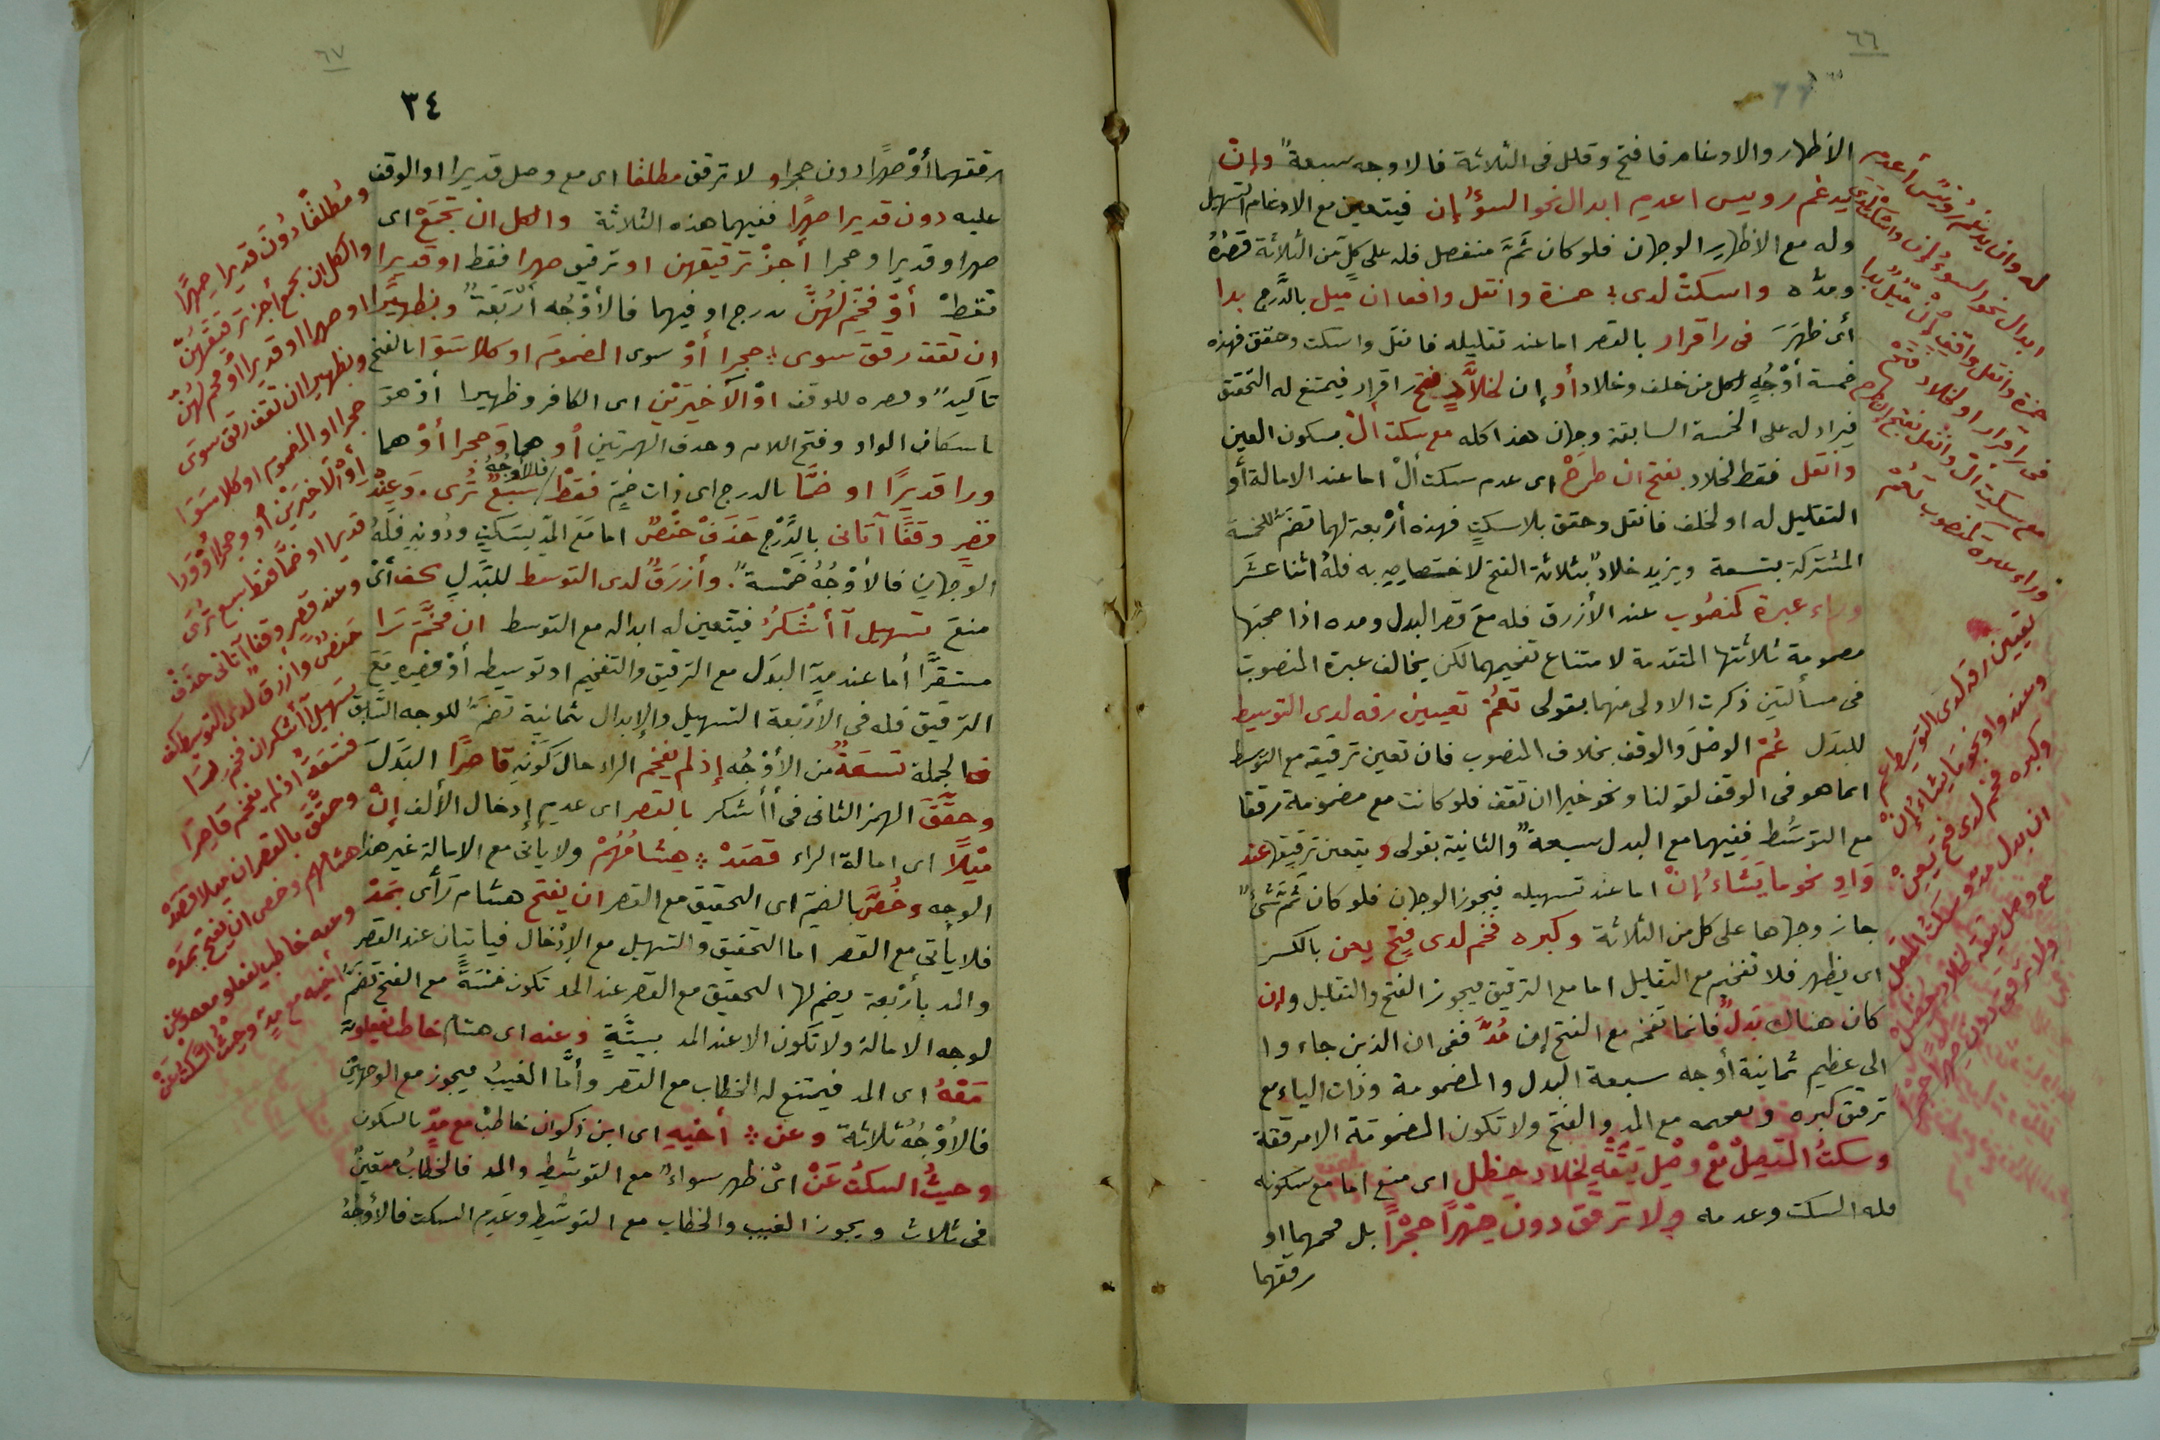 ٦٦
الاظهار والادغام فافتح وقلل فى الثلاثة فالاوجه سبعة وإنْ
يدغم رويس اعدم ابدال نحو السوٓءُ إن فيتعين مع الادغام التسهيل
وله مع الاظهار الوجهان فلو كان ثَمَّ منفصل فله على كلٍّ من الثلاثة قصْرُهُ
ومدُّه واسكتْ لدى ؛ حمزة وانقل واقفا ان مَيل بالدَّرج بدا
أى ظهَرَ فى را قرار بالقصر اما عند تقليله فانقل واسكت وحقق فهذه
خمسة أوْجُهٍ لكل من خلف وخلاد أو إن لخلاَّدٍ فتح را قرار فيمتنع له التحقق
فيزاد له على الخمسة السابقة وجهان هذا كله مع سكت الْ بسكون العين
وانقل فقط لخلاد بفتح ان طرحْ اى عدم سكت ألْ اما عند الامالة أو
التقليل له او لخلف فانقل وحقق بلا سكتٍ فهذه أرْبعة لهما تضمّ للخمسة
المشتركة بتسعة ويزيد خلادٌ بثلاثة الفتح لاختصاصِه به فلهُ اثنا عشَر
وراء عبرة كمنصُوب عند الأزرق فله معَ قصر البدل ومده اذا صحبَها
مضمومة ثلاثتها المتقدمة لامتناع تفخيمهما لكن يخالف عبرة المنصوبَ
فى مسألتين ذكرت الاولى منهما بقولى نعَمْ تعيين رقه لدى التوسط
للبدَل عُمْ الوصْلَ والوقف بخلاف المنصوب فان تعين ترقيقه مع التوسط
انما هو فى الوقف لقولنا ونحو خيرا ان تقف فلو كانت مع مضمومة رققا
مع التوسُّط ففيهما مع البدل سبعةٌ والثانية بقولى ويتعين ترقيقها عند
وَاوِ نحو ما يَشَاءُ إنْ اما عند تسهيله فيجوز الوجهان فلو كان ثَمَّ شئٌ
جاز وجهاها على كل من الثلاثة وكبره فخم لدى فتحٍ يعن بالكسر
اى يظهر فلا تفخم مع التقليل اما مع الترقيق فيجوز الفتح والتقليل وإن
كان هناك بَدلٌ فانما تفخم مع الفتح إن مُدَّ ففى ان الذين جاءوا
الى عظيم ثمانية أوجه سبعة البدل والمضمومة وذات الياء مع
ترقيق كبره وتفخيمه مع المد والفتح ولا تكون المضمومة الا مرققة
وسكتُ المتصِلْ مَعْ وصْلِ يَتَّقْهِ لخلادٍ حظل اى منع اما مع سكونه
فله السكت وعدمه ولا ترقق دون صِهْرًا حجْرًا بل فخمهما او
رققهما
له وان يدغم رُوَيسٌ أعدمِ
ابدال نحو السوءُ إن واسكتْ لدى
حمزة وانقل واقفٍ إن مَيْلٌ بدا
فى را قرار او لخلاد فتحْ
مع سكت الْ وانقل بفتح إن طرح
وراء عبرة كمنصوب نعَمْ
تعيين رقه لدى التوسط عُم
وعند واو نحو ما يشاءُ إنْ
وكبره فخم لدى فتح يَعِنْ
ان بدل مد وسكتُ المتصل
مع وصل يتقه لخلاد حظل
ولا ترقق دون صهرا حجرا
٦٧
٣٤
رققهما أوْ صهْرًا دون حجرا و لا ترقق مطلقا اى مع وصل قديرا او الوقف
عليه دون قديرا صهْرًا ففيهما هذه الثلاثة والكل ان تجمَعْ اى
صهرا وقديرا وحجرا أجزْ ترقيقهن او ترقيق صهرا فقط او قديرا
فقطْ أوْ فخِّمْ لهُنَّ بدرج او فيهما فالأوْجُه أرْبَعَةٌ وبظهيرًا
ان تقف رقق سوى ؛ حجرا أوْ سوى المضمومَ او كلا سَوَا بالفتح
تأكيدٌ وقصره للوقف اوْ الأخيرَتيْنِ اى الكافر وظهيرا أوْ هو
باسكان الواو وفتح اللام وحذف الهمزتين أو هما وَحجرا أوْ هما
ورا قديرًا او ضمًّا بالدرج اى ذات ضمّةٍ فقطْ فالأوجُهُ سَبعٌ تُرَى . وَعِنْدَ
قصْرٍ وقفًا آتانى بالدَّرْجِ حَذَفْ حَفْصٌ اما مَعَ المدِّ بسَكتٍ ودُونِهِ فلهُ
الوجهان فالأوْجُهُ خَمْسةٌ . وأزرَقٌ لدى التوسط للبَّدلِ كفّ أىْ
منعَ تسهيل آأشْكرُ فيتعين له ابداله مع التوسط ان فخَّمَ رَا
مستقرًّا أما عند مدِّ البدَل مع الترقيق والتفخيم او توسيطه أوْ قصْره مَعَ
الترقيق فله فى الأرْبعة التسهيل والإبدال ثمانية تضَمّ للوجه السَّابق
فالجملة تسعَةٌ من الأوْجُه إذ لم يفخم الراء حالَ كَوْنِه قاصرًا البَدَلَ
وحقَّقَ الهمز الثانى فى أأشكر بالقصر اى عدمِ إدخال الألف إنْ
مَيْلاً اى امالة الراء قصَدْ ؛ هِشَامُهُمْ ولا ياتى مع الامالة غير هذا
الوجه وخُصَّ بالضم اى التحقيق مع القصر ان يفتح هشام رَأى بمَدْ
فلا يأتى مع القصر اما التحقيق والتسهيل مع الإدْخال فياتيَان عند القصر
والمد بأرْبعة يضم لها التحقيق مع القصر عند المد تكون خَمْسَةً مع الفتح تضمّ
لوجه الامالة ولا تكون الا عند المد بسِتَّةٍ وعنه اى هشام خاطب يفعلونَ
مَعْهُ اى المد فيمتنع له الخطاب مع القصر وأمَّا الغيبُ فيجوز مع الوجهيْن
فالأوْجُهُ ثلاثة وعن ؛ أخيهِ اى ابن ذكوان خاطبْ مع مدّ بالسكون
وحيثُ السكتُ عَنْ اىْ ظهر سواءٌ مع التوسُّطِ والمد فالخطابُ متعينٌ
فى ثلاث ويجوز الغيب والخطاب مع التوسُّطِ وعَدم السكت فالأوجُهُ
ومُطلقًا دُونَ قديرا صِهْرًا
والكل ان تجمع أجز ترقيقَهُنّ
او صهرا او قديرا أو فخم لهُنّ
وبظهيرا ان تقف رقق سوى
حجرا او المضموم او كلا سَوَا
أوْ الاخيرَتيْنِ أو وحجرا أوْ ورا
قديرا او ضمًّا فقط سبع تُرَى
وعند قصرٍ وقفًا آتانى حَذَفْ
حَفصٌ وازرق لدى التوسط كف
تسهيل آأشكر ان فخم لرَا
فتسعَةٌ اذ لم يفخم قاصِرَا
وحقَّقَ بالقصر ان ميلا قصَدْ
هشامهم وخص ان يفتح بمَدْ
وعنه خاطب يفعلو معه وعن
أخيه مع مدٍّ وحيثُ السَّكتُ عَنْ